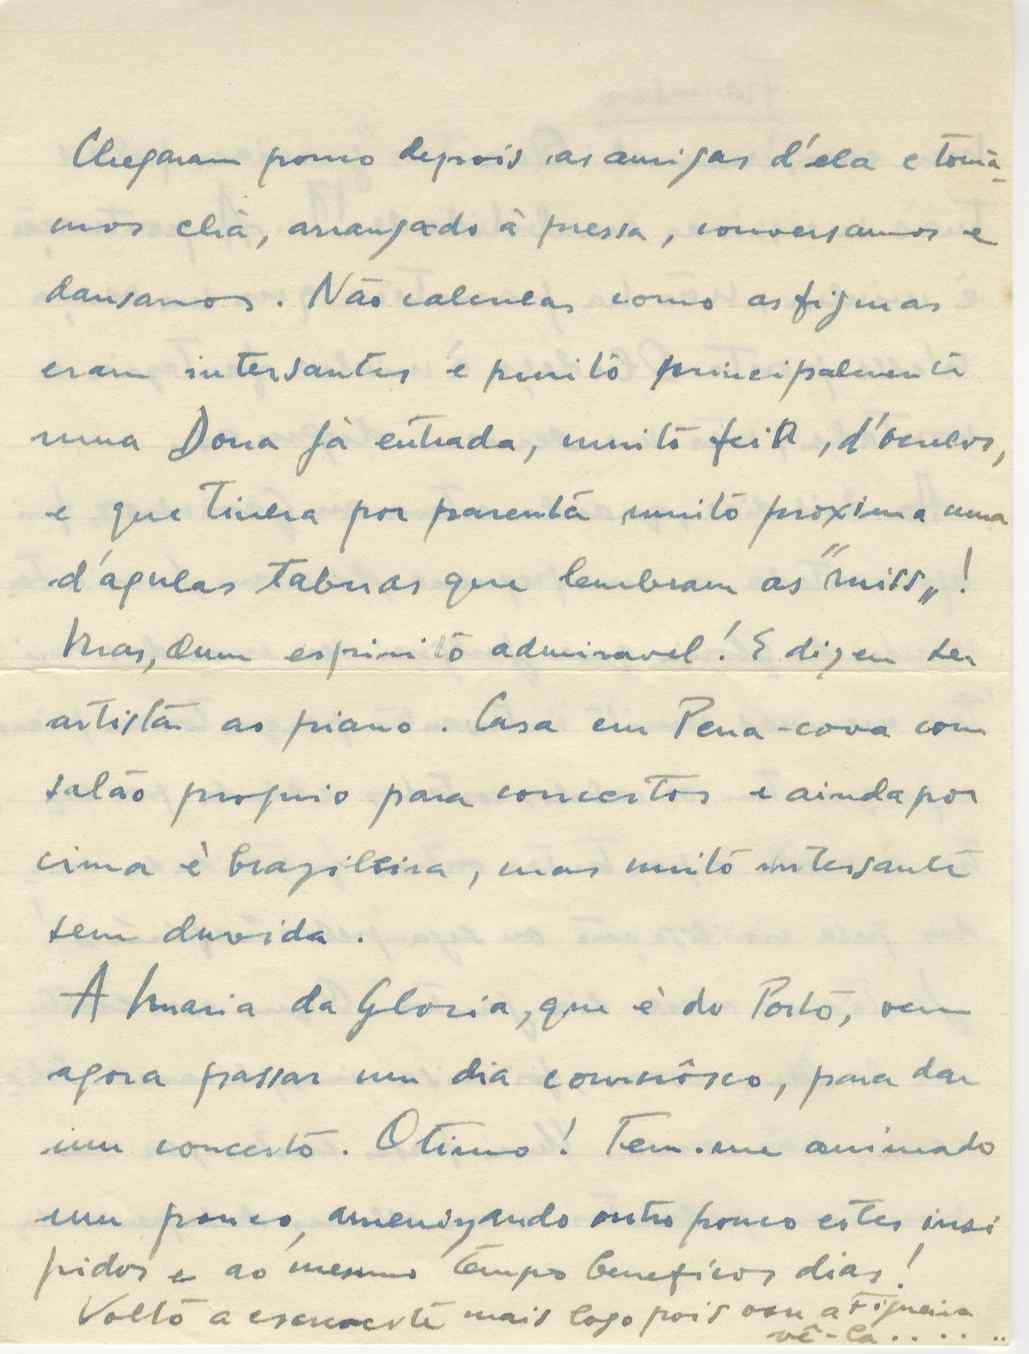 Chegaram pouco depois as amigas d'ela e tomá-
mos chá, arranjado à pressa, conversamos e
dansamos. Não calculas como as figuras
eram intersantes e muito principalmente
uma Dona já entrada, muito feia, d'oculos,
e que tivera por parenta muito proxima uma
d'aquelas taboas que lembram as "miss"!
Mas, dum espirito admiravel! E dizem ser
artista ao piano. Casa em Pena-cova com
salão proprio para concertos e ainda por
cima è brazileira, mas muito intersante
sem duvida.
A Maria da Gloria, que è do Porto, vem
agora passar um dia comnôsco, para dar
um concerto. Otimo! Tem-me animado
um pouco, amenizando outro pouco estes insi
pidos e ao mesmo tempo beneficos dias!
Volto a escrever-te mais logo pois vou a Figueira
vê-la......